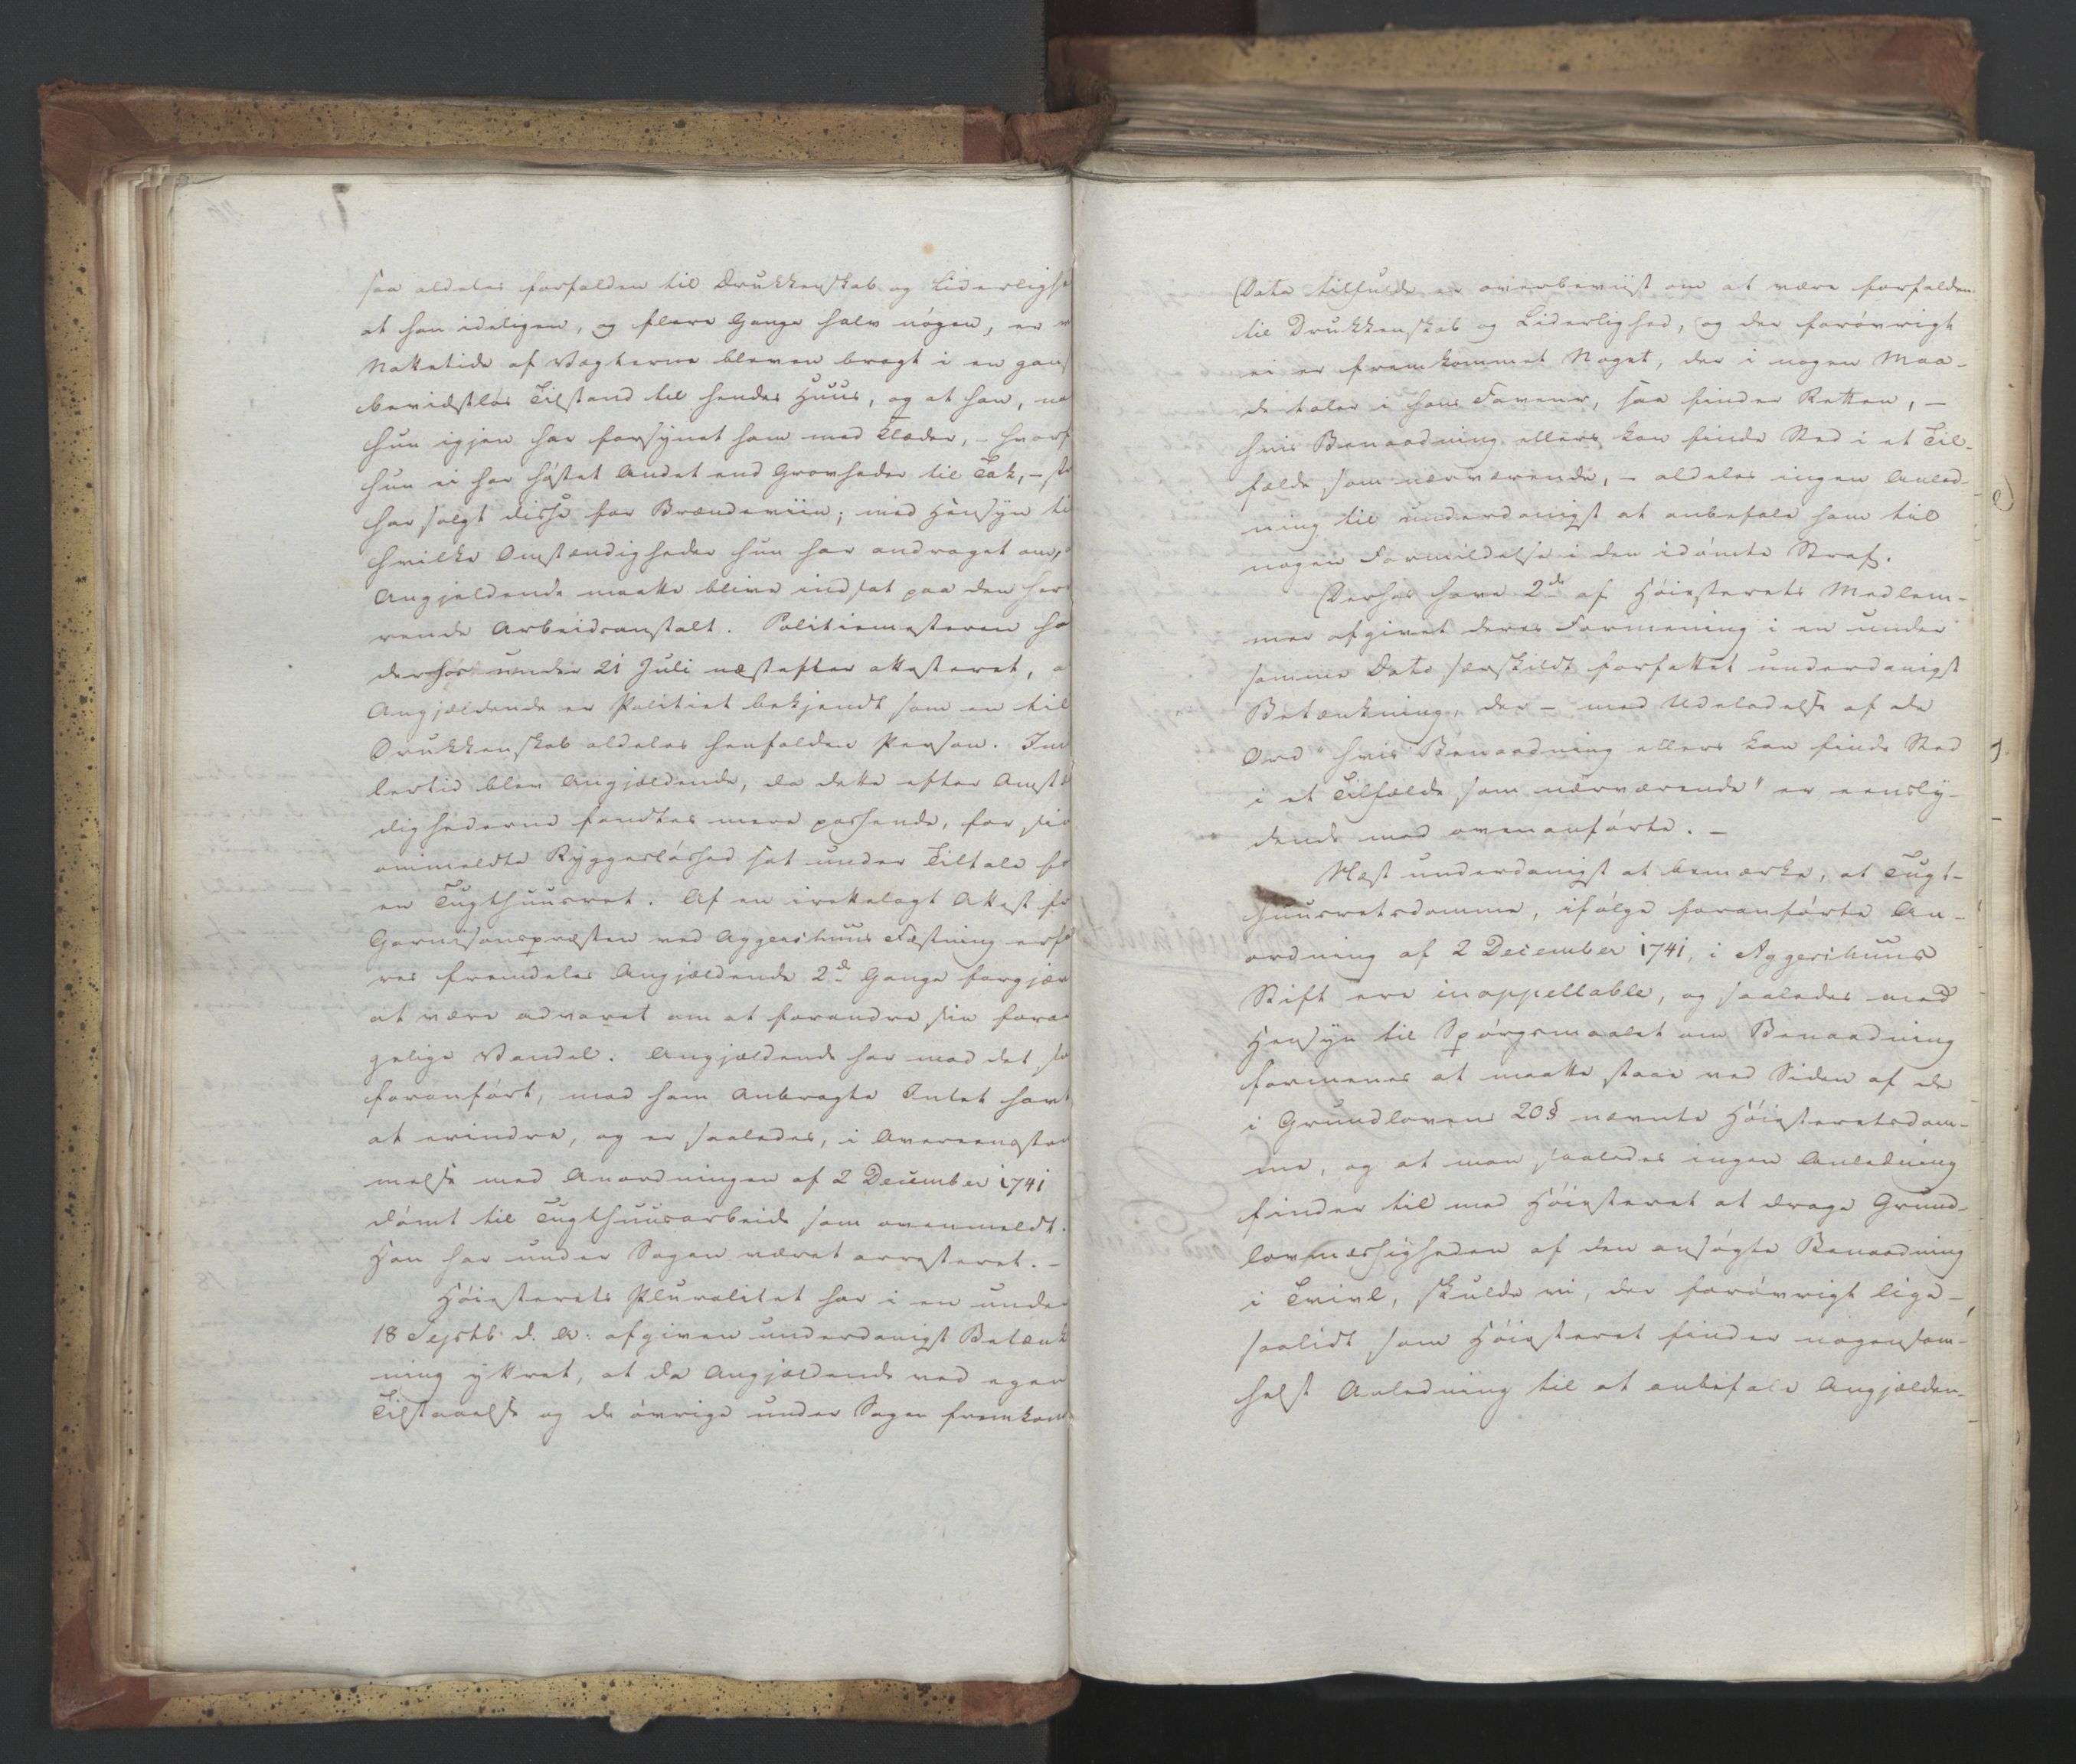 saa aldeles forfalden til Drukkenskab og Liderlighe
at han ideligen, og flere Gange halv nøgen, er v
Nattetide af Vægterne bleven bragt i en gans
bevidstløs Tilstand til hendes Huus, og at han, na
hun igjen har forsynet ham med Klæder, – hvorf
hun ei har høstet Andet end Grovheder til Tak, – st
har solgt disse for Brændeviin; med Hensyn ti
hvilke Omstændigheder hun har andraget om,
Angjeldende maatte blive indsat paa den her
rende Arbeidsanstalt. Politiemesteren ha
derhos under 21 Juli næstefter attesteret, a
Angjældende er Politiet bekjendt som en til
Drukkenskab aldeles henfalden Person. Im
lertid blev Angjældende, da dette efter Omstæ
dighederne fandtes mere passende, for sin
ommeldte Ryggesløshed sat under Tiltale fo
en Tugthuusret. Af en irettelagt Attest fr
Garnisonspræsten ved Aggershuus Fæstning erfa
res fremdeles Angjældende 2de Gange forgjæv
at være advaret om at forandre sin forar
gelige Vandel. Angjældende har mod det so
foranført, mod ham Anbragte Intet havt
at erindre, og er saaledes, i Overeensstem
melse med Anordningen af 2 December 1741
dømt til Tugthuusarbeide som ovenmeldt.
Han har under Sagen været arresteret. –
Høiesterets Pluralitet har i en under
18 Septb. d. A. afgiven underdanigst Betænk
ning yttret, at da Angjældende ved egen
Tilstaaelse og de øvrige under Sagen fremkom
Data tilfulde er overbeviist om at være forfalden
til Drukkenskab og Liderlighed, og der forøvrigt
ei er fremkommet Noget, der i nogen Maa-
de taler i hans Faveur, saa finder Retten, –
hvis Benaadning ellers kan finde Sted i et Til-
fælde som nærværende, – aldeles ingen Anled-
ning til underdanigst at anbefale ham til
nogen Formildelse i den idømte Straf.
Derhos have 2de af Høiesterets Medlem-
mer afgivet deres Formening i en under
samme Dato særskildt forfattet underdanigst
Betænkning, der – med Udeladelse af de
Ord "hvis Benaadning ellers kan finde Sted
i et Tilfælde som nærværende" er eensly-
dende med ovenanførte. –
Næst underdanigst at bemærke, at Tugt-
huusretsdomme, ifølge foranførte An-
ordning af 2 December 1741, i Aggershuus
Stift ere inappellable, og saaledes med
Hensyn til Spørgsmaalet om Benaadning
formenes at maatte staae ved Siden af de
i Grundlovens 20 § nævnte Høiesteretsdom-
me, og at man saaledes ingen Anledning
finder til med Høiesteret at drage Grund-
lovmæssigheden af den ansøgte Benaadning
i Tvivl, skulde vi, der forøvrigt lige-
saalidt som Høiesteret finder nogensom-
helst Anledning til at anbefale Angjælden-